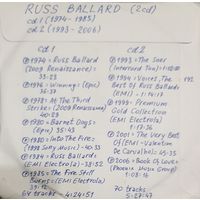 RUSS BALLARD (2cd)
cd 1 (1974-1985)
cd 2 (1993-2006)
cd 1
1974 - Russ Ballard
(2009 Renaissance):
33-23
1976 - Winning (Epic):
35-33
1978 - At The Third
Stroke (2009 Renaissance):
1980 - Barnet Dogs:
(Epic) 35-43
1980 - Into The Fire:
(1998 Sony Music) - 40-33
1984 - Russ Ballard:
(EMI Electrola) 38-52
1985 - The Fire Still
Burns: (EMI Electrola)
39-12
tracks 4:24:51
cd 2
1993 - The Seer
(Intercord Ton)
1994 - Voices. The
Best Of Russ Ballard
(EMI) - 1:17:36
1999 - Premium
Gold Collection
(EMI Electrola)
1:13:36
2001 - The Very Best
Of (EMI - Valentim
De Carvalho)
2006 - Book Of Love
(Phoenix Music Group)
70 tracks
5:27:43